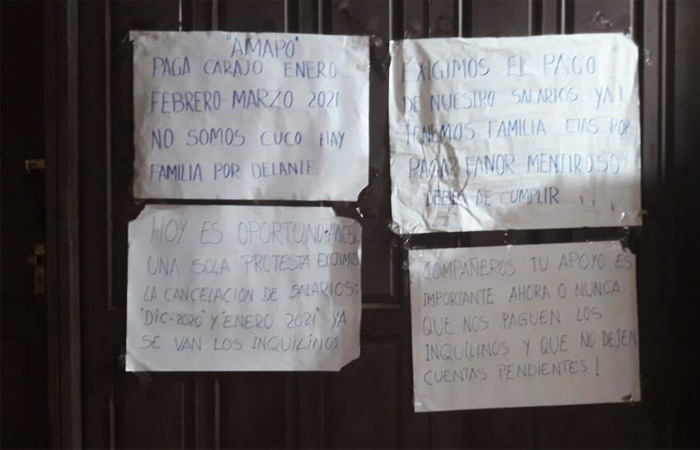 "AMAPO"
PAGA CARAJO ENERO
FEBRERO-MARZO 2021
NO SOMOS CUCO HAY
FAMILIA POR DELANTE
EXIGIMOS EL PAGO
DE NUESTRO SALARIOS YA!
TENEMOS FAMILIA CTAS POR
PAGAR FANOR MENTIROSO
DEBES DE CUMPLIR
HOY ES OPORTUNO HACER
UNA SOLA PROTESTA EXIJIMOS
LA CANCELACION DE SALARIOS:
"DIC-2020" Y "ENERO 2021" YA
SE VAN LOS INQUILINOS
COMPAÑEROS TU APOYO ES
IMPORTANTE AHORA O NUNCA
QUE NOS PAGUEN LOS
INQUILINOS Y QUE NO DEJEN
CUENTAS PENDIENTES!